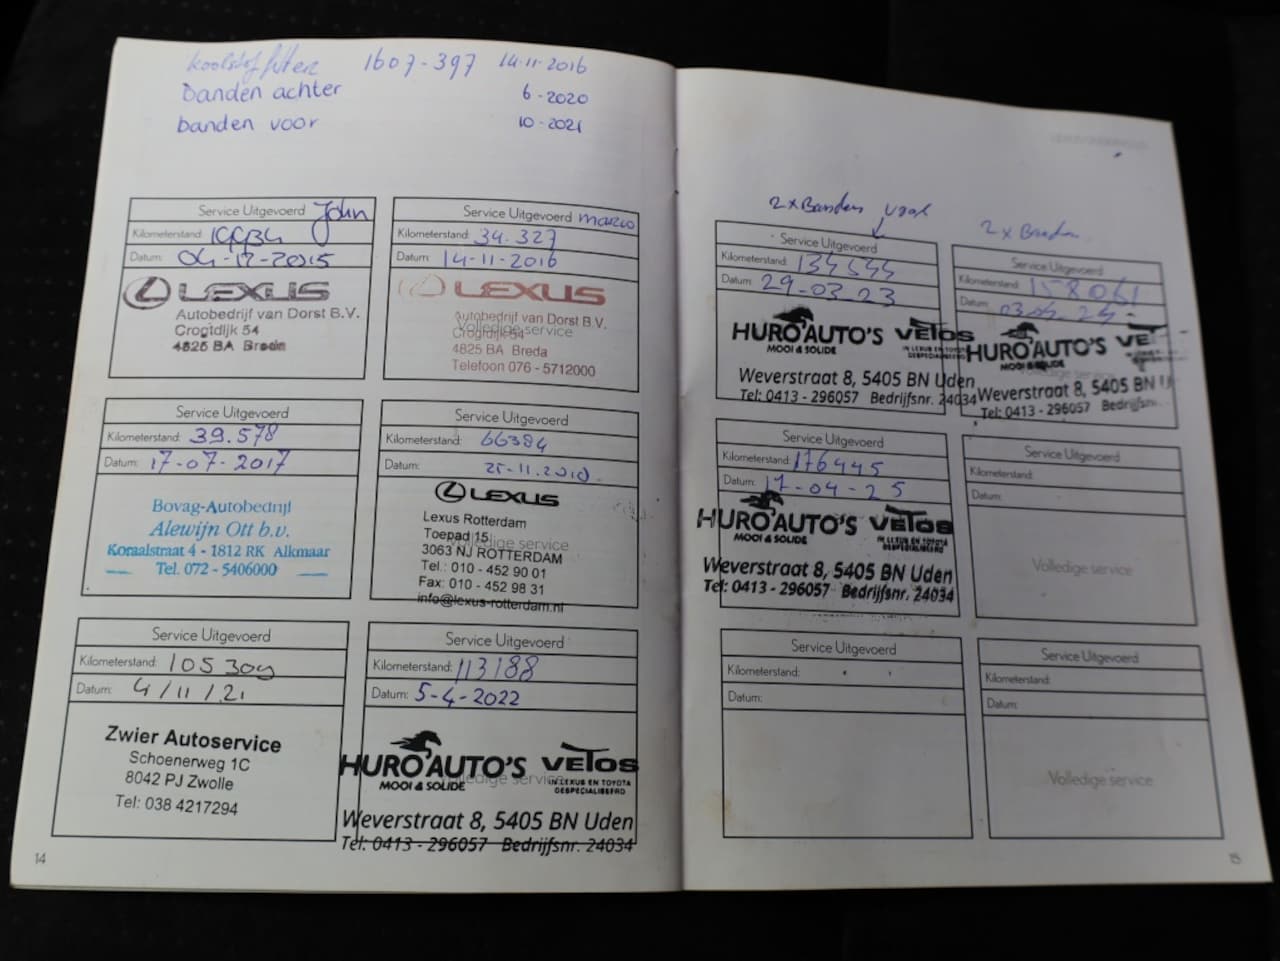 koolstoffilter 1607-397 14-11-2016
Banden achter 6-2020
banden voor 10-2021
Service Uitgevoerd John
Kilometerstand:
Datum: 04-12-2015
LEXUS
Autobedrijf van Dorst B.V.
Crogtdijk 54
4825 BA Breda
Service Uitgevoerd marco
Kilometerstand: 34.327
Datum: 14-11-2016
LEXUS
Autobedrijf van Dorst B.V.
Crogtdijk 54
Volledige service
4825 BA Breda
Telefoon 076 - 5712000
Service Uitgevoerd
Kilometerstand: 39.578
Datum: 17-07-2017
Bovag-Autobedrijf
Alewijn Ott b.v.
Koraalstraat 4 - 1812 RK Alkmaar
Tel. 072 - 5406000
Service Uitgevoerd
Kilometerstand: 66384
Datum:
LEXUS
Lexus Rotterdam
Toepad 15
Volledige service
3063 NJ ROTTERDAM
Tel.: 010 - 452 90 01
Fax: 010 - 452 98 31
info@lexus-rotterdam.nl
Service Uitgevoerd
Kilometerstand: 105309
Datum: 4/11/21
Zwier Autoservice
Schoenerweg 1C
8042 PJ Zwolle
Tel: 038 4217294
Service Uitgevoerd
Kilometerstand: 113188
Datum: 5-4-2022
HURO AUTO'S VETOS
MOOI & SOLIDE IN LEXUS EN TOYOTA
GESPECIALISEERD
Volledige service
Weverstraat 8, 5405 BN Uden
Tel: 0413 - 296057 Bedrijfsnr. 24034
14
2x Banden
Service Uitgevoerd
Kilometerstand: 134544
Datum: 29-03-23
HURO AUTO'S VETOS
MOOI & SOLIDE IN LEXUS EN TOYOTA
GESPECIALISEERD
Weverstraat 8, 5405 BN Uden
Tel: 0413 - 296057 Bedrijfsnr. 24034
2x Banden
Service Uitgevoerd
Kilometerstand: 158061
Datum:
HURO AUTO'S VET
MOOI & SOLIDE
Weverstraat 8, 5405 BN U
Tel: 0413 - 296057 Bedrijfsn.
Service Uitgevoerd
Kilometerstand: 176445
Datum: 17-04-25
HURO AUTO'S VETOS
MOOI & SOLIDE IN LEXUS EN TOYOTA
GESPECIALISEERD
Weverstraat 8, 5405 BN Uden
Tel: 0413 - 296057 Bedrijfsnr. 24034
Service Uitgevoerd
Kilometerstand:
Datum:
Volledige service
Service Uitgevoerd
Kilometerstand:
Datum:
Service Uitgevoerd
Kilometerstand:
Datum:
Volledige service
15